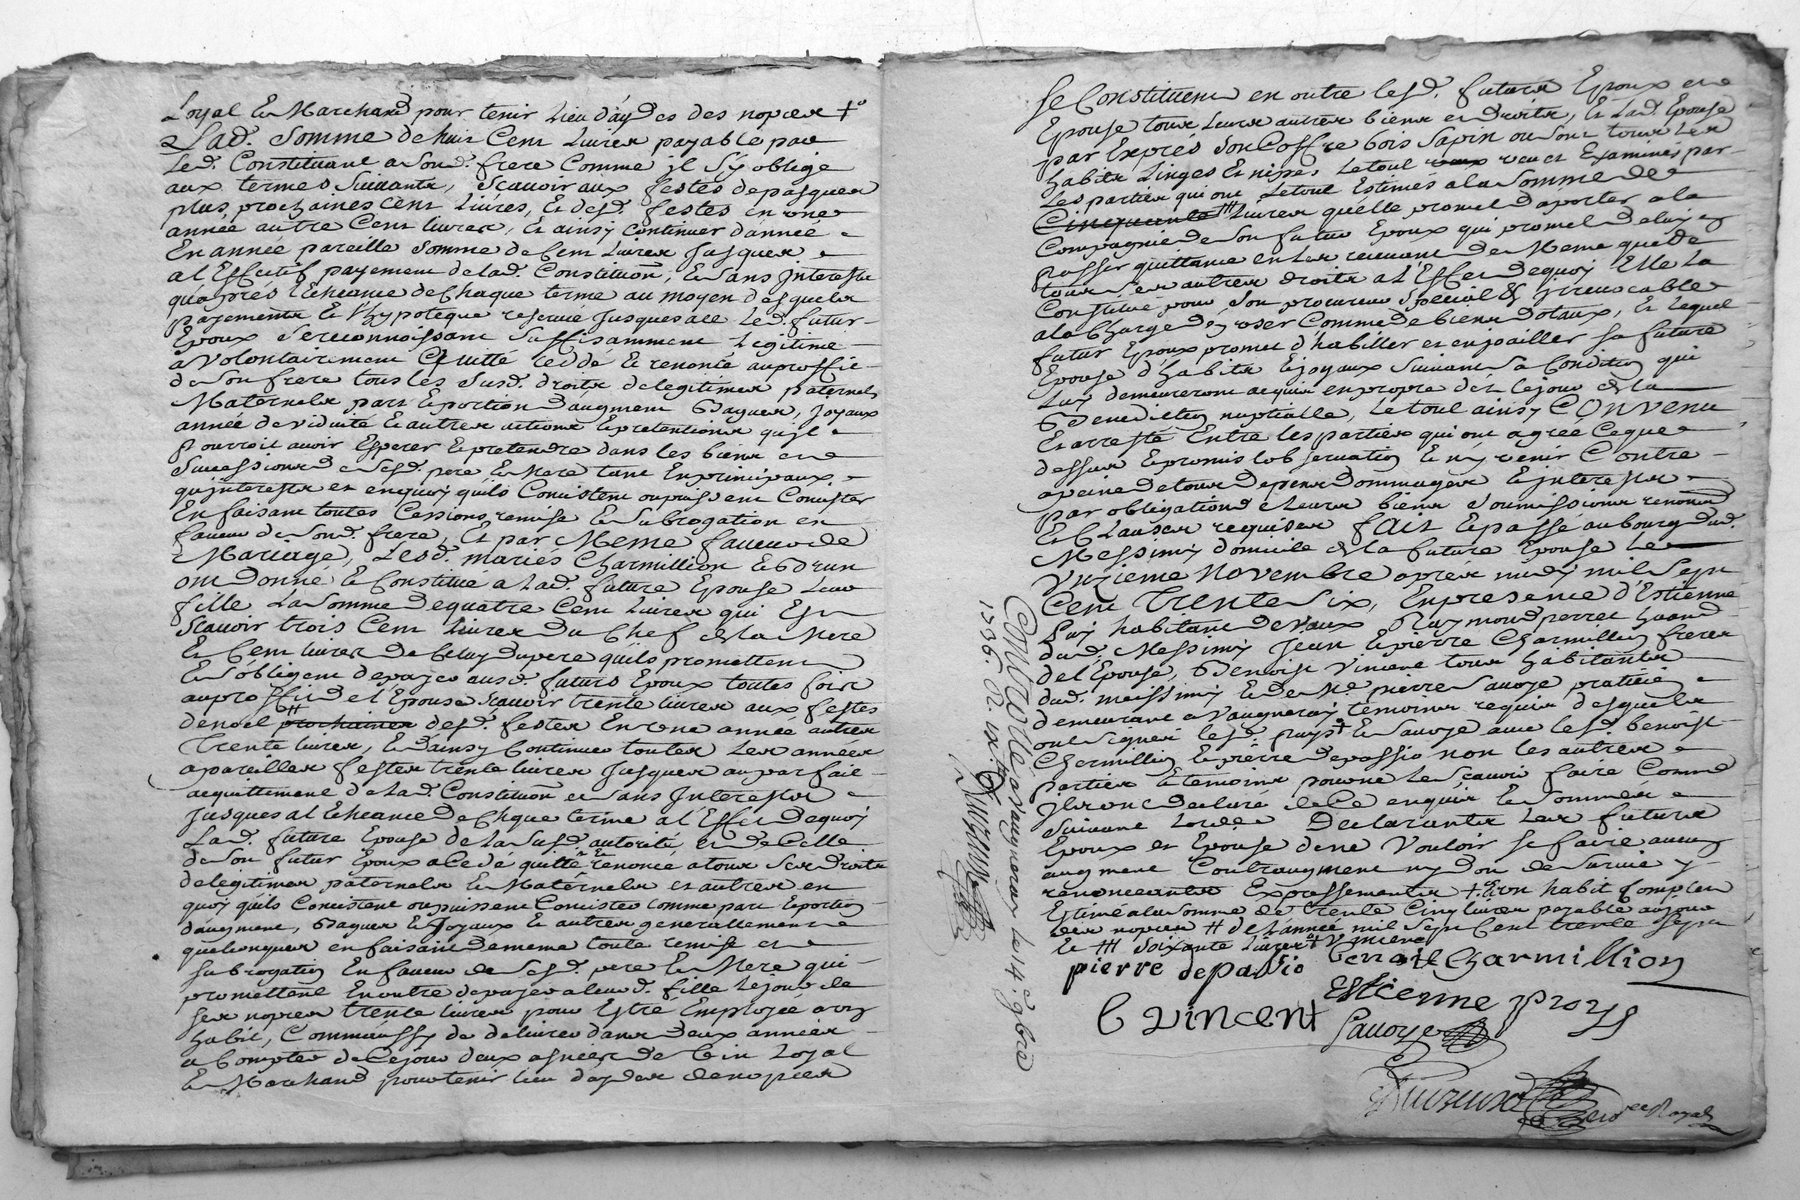 Loyal Et Marchand pour tenir Lieu d'aydes des nopces +
Lad. Somme de huit Cent Livres payable par
Led. Constituant a Sond. frere Comme il S'y oblige
aux termes Suivants, Scavoir aux festes de pasques
plus prochaines Cent Livres, Et desd. festes en une
année autre Cent livres, Et ainsy Continuer d'année
En année pareille Somme de Cent Livres Jusques
al Effectif payement de lad. Constitution, Et Sans Interests
qu'apres l'Echeance de Chaque terme au moyen desquels
payements Et l'hypoteque reservé Jusques ace Led. futur
Epoux Se reconnoissant Suffisamment Legitimé
a Volontairement Quitté Ceddé Et renoncé au proffit
de Son frere tous les Susd. droits de legitimes paternels
Maternels part Et portion d'augment Bagues, Joyaux
année de viduité Et autres actions Et pretentions qu'il
Pourroit avoir Esperer Et pretendre dans les biens et
Successions de Sesd. pere Et Mere tant En principaux
qu'interests et en quoy quils Consistent ou puissent Consister
En faisant toutes Cessions remise Et Subrogation en
faveur de Sond. frere, Et par Meme faveur de
Mariage, Lesd. mariés Charmillion Et
ont donné Et Constitué a Lad. future Epouse Leur
fille La Somme de quatre Cent Livres qui Est
Scavoir trois Cent Livres du Chef de la Mere
Et Cent livres de Celuy du pere quils promettent
Et S'obligent de payer ausd. futurs Epoux toutes fois
au proffit de l'Epouse Scavoir trente livres aux festes
de noel prochaines desd. festes En une année autres
Trente livres, Et ainsy Continuer toutes Les années
a pareilles festes trente livres Jusques au parfait
acquittement de Lad. Constitution et Sans Interests
Jusques al Echeance de Chque terme al Effet de quoy
La d. future Epouse de La Susd. autorité et de Celle
de Son futur Epoux a Cedé quitté Et renoncé a tous Ses droits
de legitimes paternels Et Maternels et autres en
quoy quils Consistent ou puissent Consister Comme part Et portion
d'augment, Bagues Et Joyaux Et autres generallement
quelconques en faisant de meme toute remise et
Subrogation En faveur de Sesd. pere Et Mere qui
promettent En outre de payer a leurd. fille Le Jour de
Ses nopces trente livres pour Estre Employée a un
habit, Comm'aussy de delivrer dans deux années
a Compter de Ce Jour deux asnées de vin Loyal
Et Marchand pour tenir lieu d'aydes de nopces
Se Constituent en outre lesd. futurs Epoux et
Epouse tous Leurs autres biens et droits, Et Lad. Epouse
par Exprés Son Coffre bois Sapin ou Sont tous Les
habits Linges Et nipes Le tout veu et Examinés par
Les parties qui ont Le tout Estimés a la Somme de
Cinquante Livres qu'elle promet d'aporter a la
Compagnie de Son futur Epoux qui promet de luy en
Passer quittance en Les recevant de Meme que de
tous Ses autres droits al Effet de quoy Elle La
Constitué pour Son procureur Special & irrevocable
a la Charge d'y user Comme de biens dotaux, Et Lequel
futur Epoux promet d'habiller et enjoailler Sa future
Epouse d'habits Et joyaux Suivant Sa Condition qui
Luy demeureront acquis en propre dez Le jour de la
Benediction nuptialle, Le tout ainsy Convenu
Et arresté Entre les parties qui ont agreé Ce que
dessus Et promis lobservation Et n'y venir Contre
a peine de tous depens dommages Et interests
par obligation de Leurs biens Soumissions renond.
Et Clauses requises fait Et passé au bourg dud.
Messimy domicile de la future Epouse Le
Unzieme Novembre apres midy mil Sept
Cent Trente Six, En presence d'Estienne
Puy habitant de Vaux Raymond perret
dud. Messimy Jean Et pierre Charmillion freres
de l'Epouse, Benoist Vincent tous habitants
dud. messimy Et de Me. pierre Savoye praticien
demeurant a Vaugneray temoins requis desquels
ont Signer lesd. puys Et Savoye avec lesd. benoist
Charmillion Et pierre depassio non les autres
parties Et temoins pour ne Le Scavoir faire Comme
Ils ont declaré de Ce enquis Et Sommes
Suivant Lordce Declarants Les futurs
Epoux et Epouse de ne Vouloir Se faire aucun
augment Contraugment ny don de Survie y
renonceants Expressements + Et un habit Complet
Estimé a la Somme de trente Cinq livres payable au jour
des nopces # de L'année mil Sept Cent trente Sept
Et ### Soixante Livres + Vincent
pierre depassio benoit Charmillion
b vincent Estienne puys
Savoye
Controllé a vaugneray le 14e 9bre
1736.